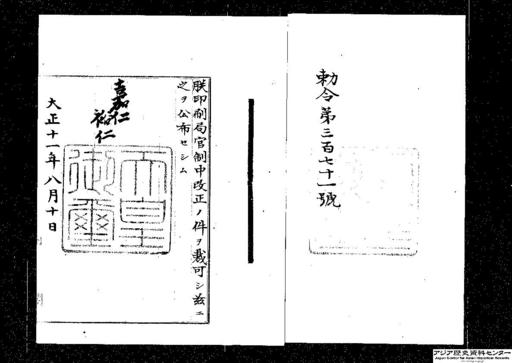 勅令第三百七十一號
朕印刷局官制中改正ノ件ヲ裁可シ茲ニ
之ヲ公布セシム
嘉仁
裕仁
天皇御璽
大正十一年八月十日
アジア歴史資料センター
Japan Center for Asian Historical Records